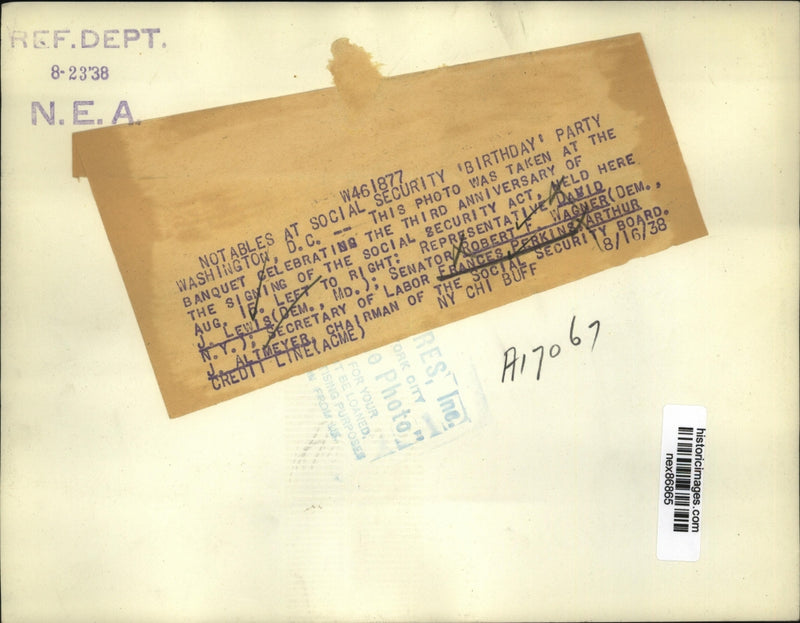 REF. DEPT.
8-23'38
N. E. A.
W461877
NOTABLES AT SOCIAL SECURITY 'BIRTHDAY' PARTY
WASHINGTON, D.C. -- THIS PHOTO WAS TAKEN AT THE
BANQUET CELEBRATING THE THIRD ANNIVERSARY OF
THE SIGNING OF THE SOCIAL SECURITY ACT, HELD HERE
AUG. LEFT TO RIGHT: REPRESENTATIVE DAVID
J. LEWIS (DEM., MD.); SENATOR ROBERT F. WAGNER (DEM.,
N.Y.); SECRETARY OF LABOR FRANCES PERKINS; ARTHUR
J. ALTMEYER, CHAIRMAN OF THE SOCIAL SECURITY BOARD.
CREDIT LINE (ACME) NY CHI BUFF 8/16/38
A17067
RES, Inc.
ORK CITY
Photo"
FOR YOUR
T BE LOANED,
ISING PURPOSES
FROM US.
historicimages.com
nex86865